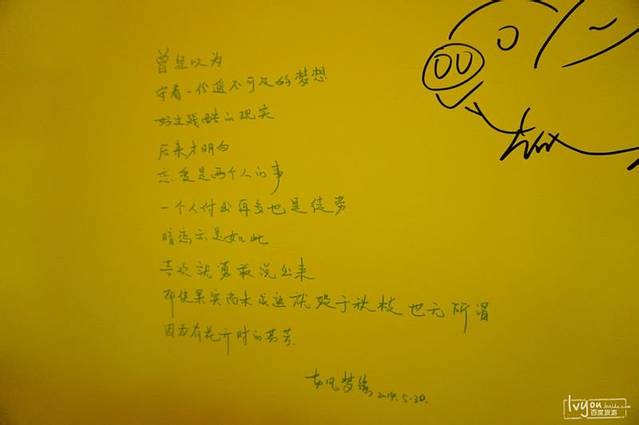 曾经以为
守着一份遥不可及的梦想
好过残酷的现实
后来才明白
恋爱是两个人的事
一个人付出再多也是徒劳
暗恋亦是如此
喜欢就勇敢说出来
即使果实尚未成熟就毁于秋枝也无所谓
因为有花开时的芬芳
2014.5.30.
lvyou.baidu.com
百度旅游